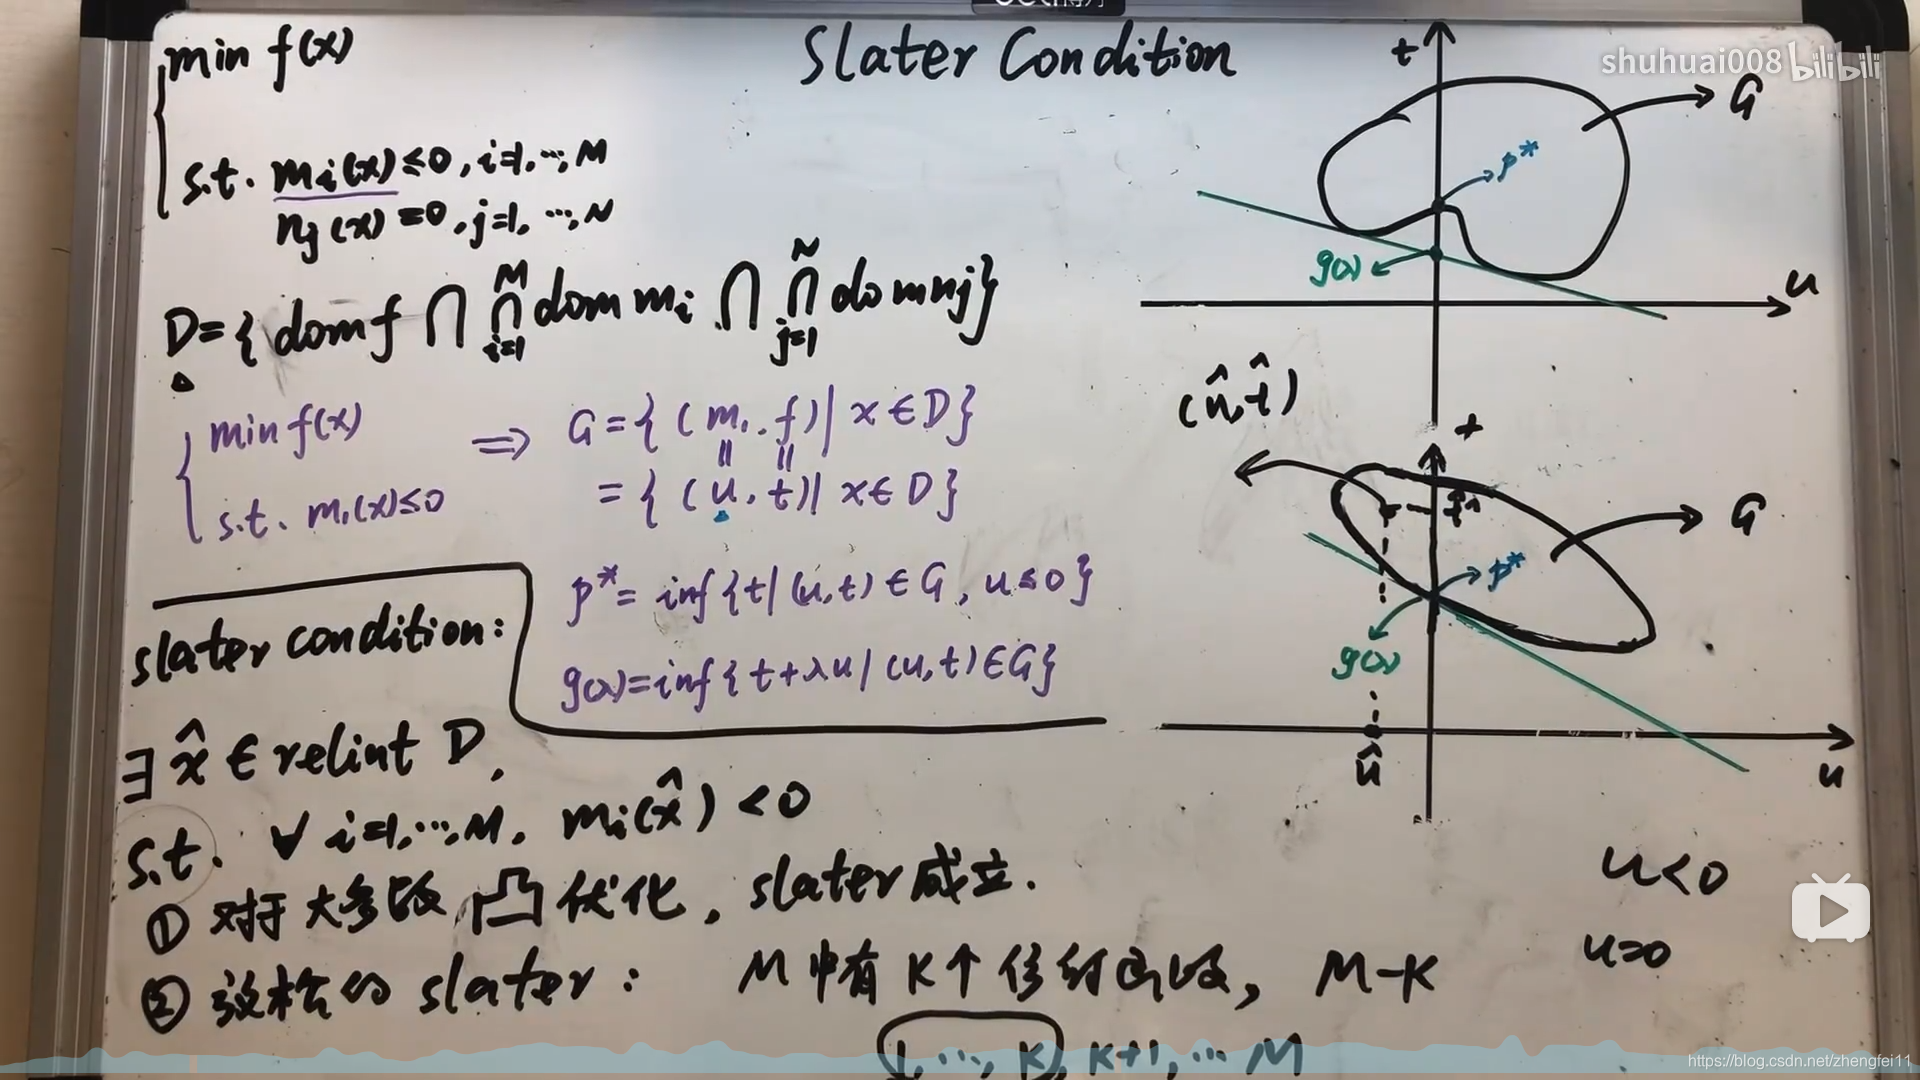 Slater Condition
min f(x)
s.t. mi(x)≤0, i=1,...,M
nj(x)=0, j=1,...,N
D={domf ∩ ∩ᵢ₌₁ᴹ dom mi ∩ ∩ⱼ₌₁ᴺ dom nj}
min f(x)
s.t. m₁(x)≤0
⇒ G={(m₁,f)| x∈D}
={(u,t)| x∈D}
p*=inf{t|(u,t)∈G, u≤0}
g(λ)=inf{t+λu|(u,t)∈G}
slater condition:
∃ x̂ ∈ relint D,
s.t. ∀ i=1,...,M, mi(x̂)<0
① 对于大多数凸优化, slater成立.
② 放松的 slater: M中有K个仿射函数, M-K
1,...,K, K+1,...M
t
G
p*
g(λ)
u
(û,t̂)
t
t̂
G
p*
g(λ)
û
u
u<0
u=0
shuhuai008 bilibili
https://blog.csdn.net/zhengfei11